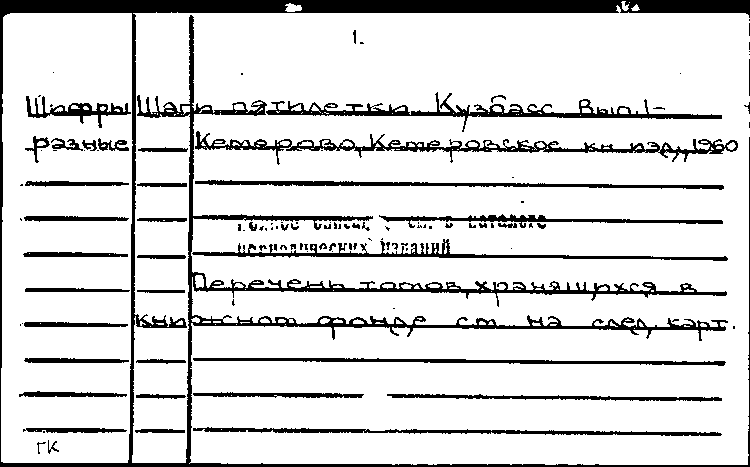 1.
Шифры Шаги пятилетки. Кузбасс. Вып. 1-
разные Кемерово, Кемеровское кн. изд., 1960
Полное описан. см. в каталоге
периодических изданий
Перечень томов, хранящихся в
книжном фонде см. на след. карт.
ГК